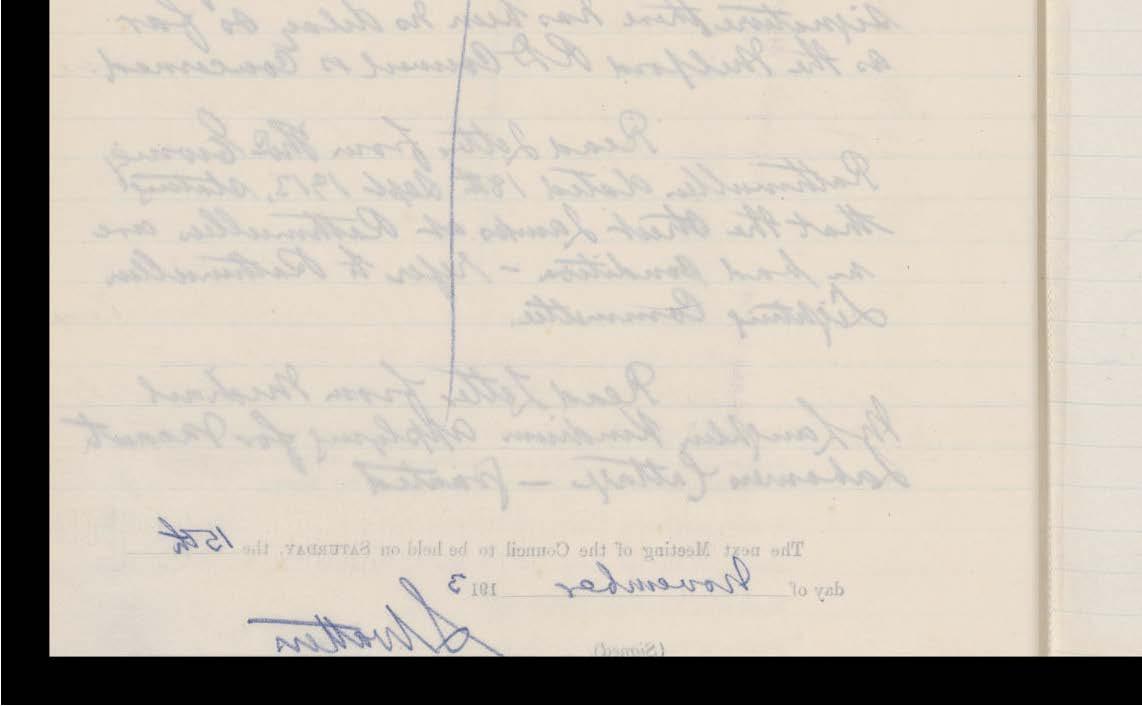 there has been no delay as far
as the Milford RD Council is Concerned.
Read Letter from
Rathmullan dated 18th Sept 1913, stating
that the Street Lamps at Rathmullan are
in bad Condition – Refer to Rathmullan
Lighting Committee.
Read Letter from Michael
McLaughlin, applying for Vacant
Labourers Cottage –
The next Meeting of the Council to be held on SATURDAY, the 15th
day of November 1913
(Signed)